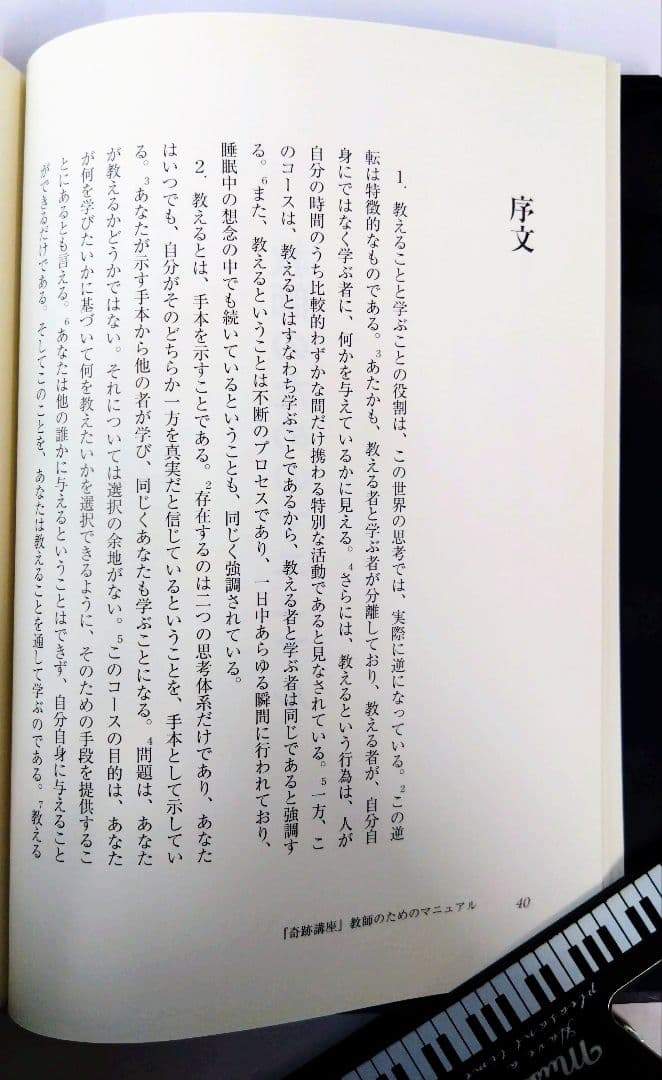 序文
1. 教えることと学ぶことの役割は、この世界の思考では、実際に逆になっている。2この逆
転は特徴的なものである。3あたかも、教える者と学ぶ者が分離しており、教える者が、自分自
身にではなく学ぶ者に、何かを与えているかに見える。4さらには、教えるという行為は、人が
自分の時間のうち比較的わずかな間だけ携わる特別な活動であると見なされている。5一方、こ
のコースは、教えるとはすなわち学ぶことであるから、教える者と学ぶ者は同じであると強調す
る。6また、教えるということは不断のプロセスであり、一日中あらゆる瞬間に行われており、
睡眠中の想念の中でも続いているということも、同じく強調されている。
2. 教えるとは、手本を示すことである。2存在するのは二つの思考体系だけであり、あなた
はいつでも、自分がそのどちらか一方を真実だと信じているということを、手本として示してい
る。3あなたが示す手本から他の者が学び、同じくあなたも学ぶことになる。4問題は、あなた
が教えるかどうかではない。それについては選択の余地がない。5このコースの目的は、あなた
が何を学びたいかに基づいて何を教えたいかを選択できるように、そのための手段を提供するこ
とにあるとも言える。6あなたは他の誰かに与えるということはできず、自分自身に与えること
ができるだけである。そしてこのことを、あなたは教えることを通して学ぶのである。7教える
『奇跡講座』教師のためのマニュアル 40
Have a
pleasant time